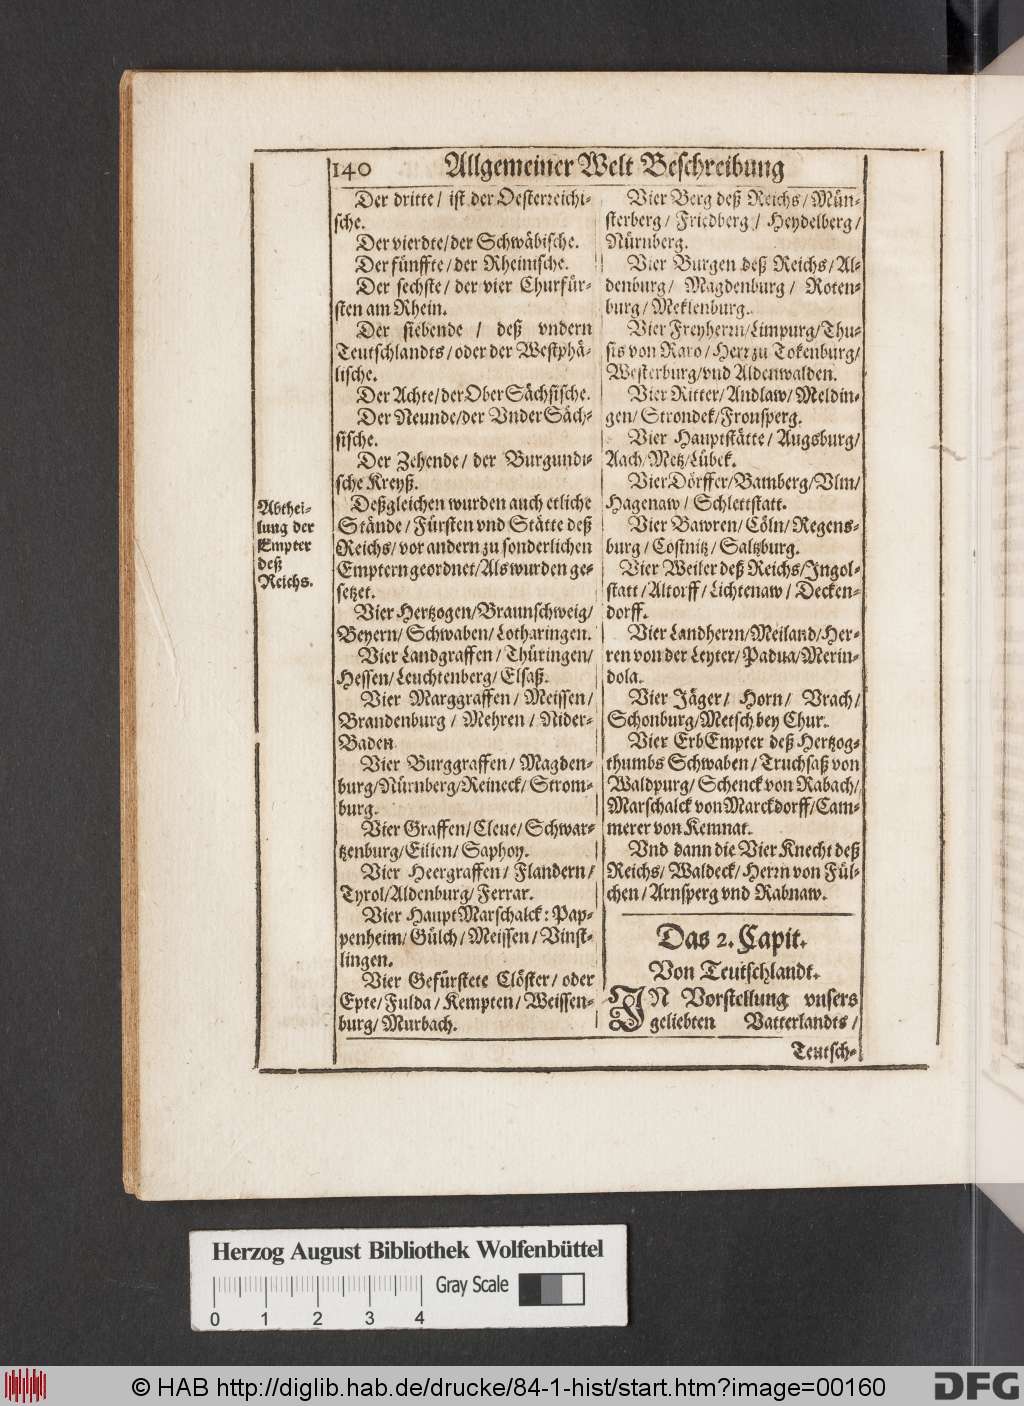 140 Allgemeiner Welt Beschreibung
Der dritte / ist der Oesterreichi-
sche.
Der vierdte/der Schwäbische.
Der fünffte/der Rheinische.
Der sechste/ der vier Churfür-
sten am Rhein.
Der siebende / deß vndern
Teutschlandts/oder der Westphä-
lische.
Der Achte/der Ober Sächsische.
Der Neunde/der Vnder Säch-
sische.
Der Zehende/ der Burgundi-
sche Kreyß.
Abthei-
lung der
Empter
deß
Reichs.
Deßgleichen wurden auch etliche
Stände/ Fürsten vnd Stätte deß
Reichs/ vor andern zu sonderlichen
Emptern geordnet/Als wurden ge-
setzet.
Vier Hertzogen/Braunschweig/
Beyern/ Schwaben/ Lotharingen.
Vier Landgraffen/ Thüringen/
Hessen/ Leuchtenberg/ Elsaß.
Vier Marggraffen/ Meissen/
Brandenburg / Mehren / Nider-
Baden
Vier Burggraffen/ Magden-
burg/Nürnberg/Reineck/ Strom-
burg.
Vier Graffen/ Cleue/ Schwar-
tzenburg/ Eilien/ Saphoy.
Vier Heergraffen/ Flandern/
Tyrol/Aldenburg/ Ferrar.
Vier HauptMarschalck: Pap-
penheim/ Gülch/ Meissen/ Vinst-
lingen.
Vier Gefürstete Clöster/ oder
Epte/ Fulda/ Kempten/ Weissen-
burg/ Murbach.
Vier Berg deß Reichs/ Mün-
sterberg/ Friedberg/ Heydelberg/
Nürnberg.
Vier Burgen deß Reichs/ Al-
denburg/ Magdenburg/ Roten-
burg/ Meklenburg.
Vier Freyherrn/Limpurg/Thu-
sis von Raro/ Herr zu Tokenburg/
Westerburg/vnd Aldenwalden.
Vier Ritter/ Andlaw/ Meldin-
gen/ Strondek/Fronsperg.
Vier Hauptstätte/ Augsburg/
Aach/Metz/Lübek.
Vier Dörffer/Bamberg/Vlm/
Hagenaw/ Schlettstatt.
Vier Bawren/ Cöln/ Regens-
burg/ Costnitz/ Saltzburg.
Vier Weiler deß Reichs/Ingol-
statt/Altorff/Lichtenaw/ Decken-
dorff.
Vier Landherrn/Meiland/Her-
ren von der Leyter/ Padua/Merin-
dola.
Vier Jäger/ Horn/ Vrach/
Schonburg/Metsch bey Chur.
Vier ErbEmpter deß Hertzog-
thumbs Schwaben/ Truchsaß von
Waldpurg/ Schenck von Rabach/
Marschalck von Marckdorff/Cam-
merer von Kemnat.
Vnd dann die Vier Knecht deß
Reichs/ Waldeck/ Herrn von Fül-
chen/ Arnsperg vnd Rabnaw.
Das 2. Capit.
Von Teutschlandt.
IN Vorstellung vnsers
geliebten Vatterlandts/
Teutsch-
Herzog August Bibliothek Wolfenbüttel
Gray Scale
0 1 2 3 4
© HAB http://diglib.hab.de/drucke/84-1-hist/start.htm?image=00160
DFG